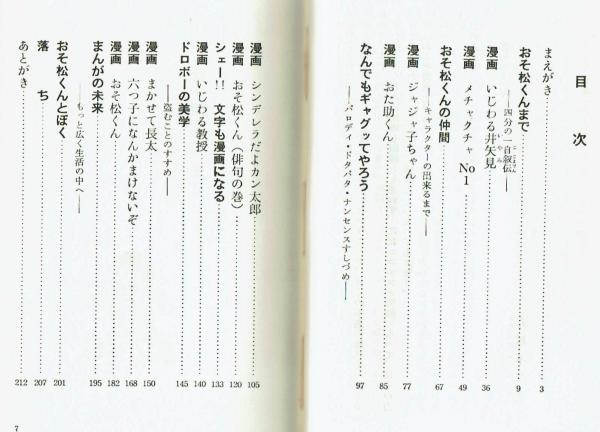 目次
まえがき……3
おそ松くんまで……9
——四分の一自叙伝——
漫画 いじわる井矢見……36
いやみ
漫画 メチャクチャNo1……49
おそ松くんの仲間……67
——キャラクターの出来るまで——
漫画 ジャジャ子ちゃん……77
漫画 おた助くん……85
なんでもギャグッてやろう……97
——パロディ・ドタバタ・ナンセンスすしづめ——
漫画 シンデレラだよカン太郎……105
漫画 おそ松くん(俳句の巻)……120
シェー!! 文字も漫画になる……133
漫画 いじわる教授……140
ドロボーの美学……145
——盗むことのすすめ——
漫画 まかせて長太……150
漫画 六つ子になんかまけないぞ……168
漫画 おそ松くん……182
まんがの未来……195
——もっと広く生活の中へ——
おそ松くんとぼく……201
落ち……207
あとがき……212
7